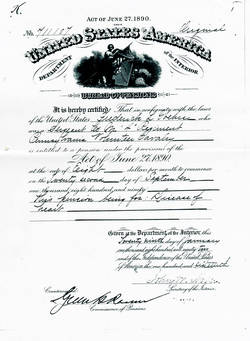 ACT OF JUNE 27, 1890.
Original
UNITED STATES OF AMERICA
DEPARTMENT OF THE INTERIOR.
BUREAU OF PENSIONS
It is hereby certified That in conformity with the laws
of the United States Frederick
was Sergeant Co Regiment
Pennsylvania
is entitled to a pension under the provisions of the
Act of June 27, 1890.
at the rate of eight dollars per month to commence
on the twenty second day of September
one thousand eight hundred and ninety
This pension being for Disease of
heart
Given at the Department of the Interior this
Twenty ninth day of January
one thousand eight hundred and ninety two
and of the Independence of the United States
of America the one hundred and sixteenth
Secretary of the Interior.
Commissioner of Pensions